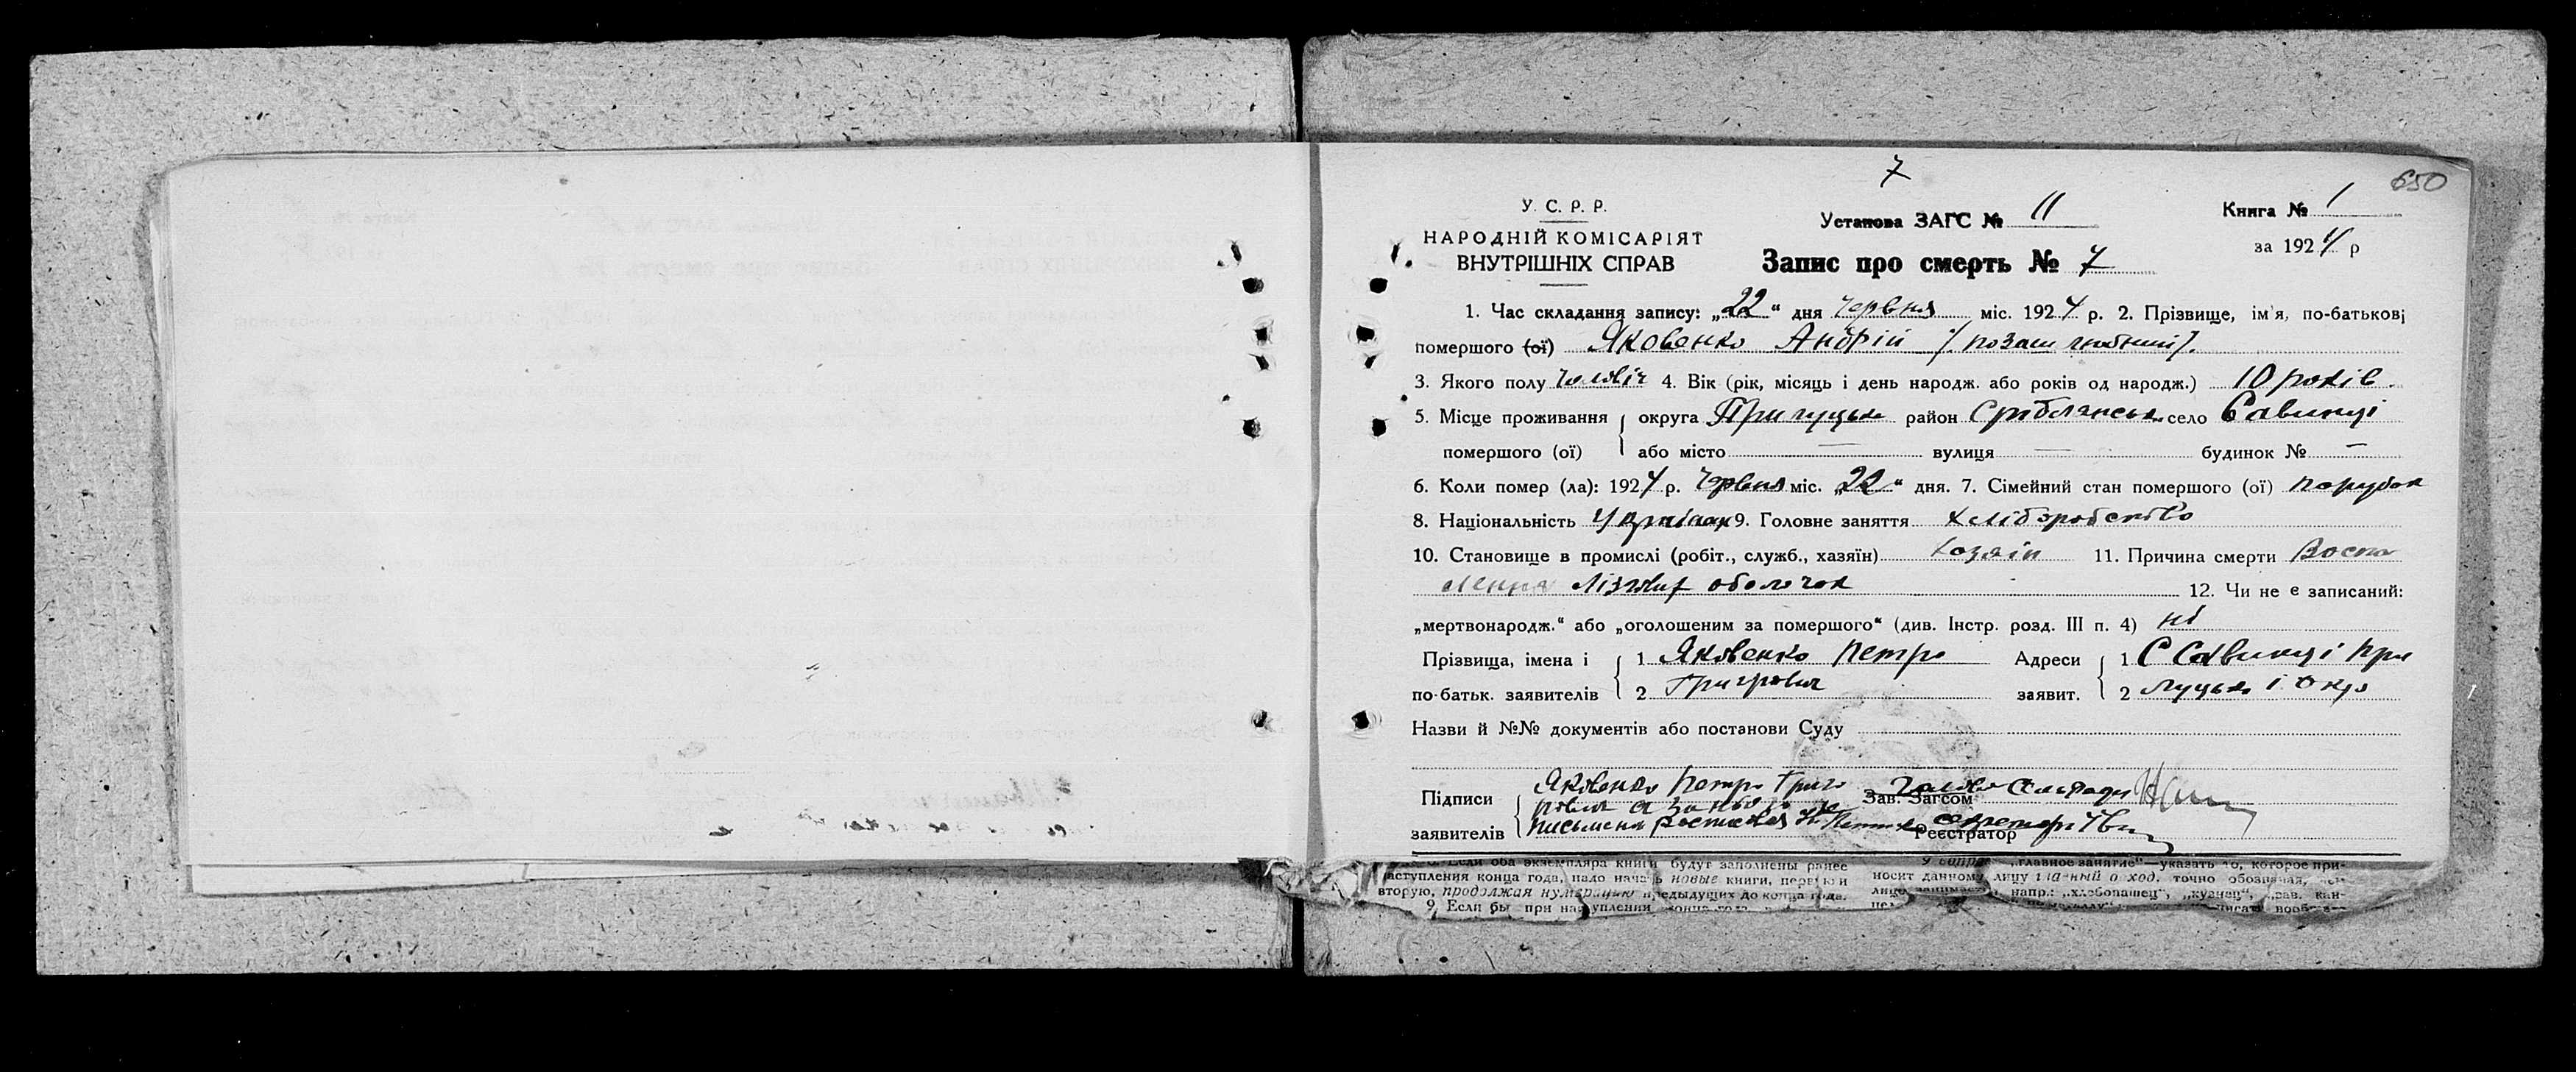 7
650
У. С. Р. Р.
НАРОДНІЙ КОМІСАРІЯТ
ВНУТРІШНІХ СПРАВ
Установа ЗАГС № 11
Запис про смерть № 7
Книга № 1
за 1924 р
1. Час складання запису: „22“ дня Червня міс. 1924 р. 2. Прізвище, ім'я, по-батькові
помершого (ої) Яковенко Андрій
3. Якого полу чоловіч 4. Вік (рік, місяць і день народж. або років од народж.) 10 років.
5. Місце проживання округа Прилуцька район Срибланськ село Савинці
помершого (ої) або місто — вулиця — будинок № —
6. Коли помер (ла): 1924 р. Червня міс. „22“ дня. 7. Сімейний стан помершого (ої) парубок
8. Національність Українец 9. Головне заняття хліборобство
10. Становище в промислі (робіт., служб., хазяїн) хозяін 11. Причина смерти Воспа
лення мізкових оболочок 12. Чи не є записаний:
„мертвонародж.“ або „оголошеним за помершого“ (див. Інстр. розд. III п. 4) ні
Прізвища, імена і 1 Яковенко Петро Адреси 1 С Савинці При
по-батьк. заявителів 2 Григрович заявит. 2 луцької Окр
Назви й №№ документів або постанови Суду
Підписи Яковенко Петро Григо Зав. Загсом Голова Сельради
заявителів рович а за нього не
письмен росписався Реєстратор секретарь
Если оба экземпляра книги будут заполнены ранее
наступления конца года, надо начать новые книги, первую и
вторую, продолжая нумерацию предыдущих до конца года.
9. Если бы при наступлении конца года
„главное занятие“—указать то, которое при-
носит данному лицу главный доход, точно обозначая,
напр.: „хлебопашец“, „кузнец“, „зав. кан-